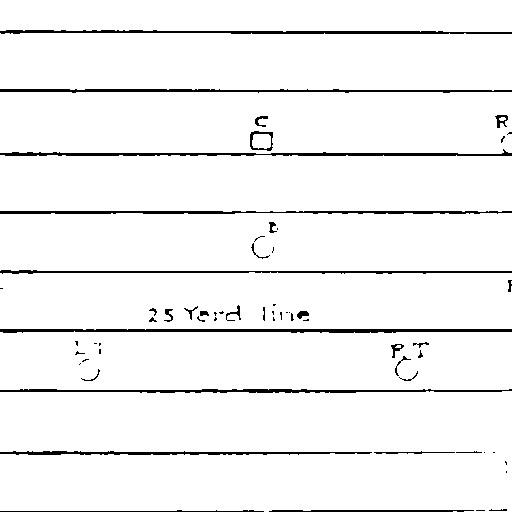 C
R
B
25 Yard line
L T
R T